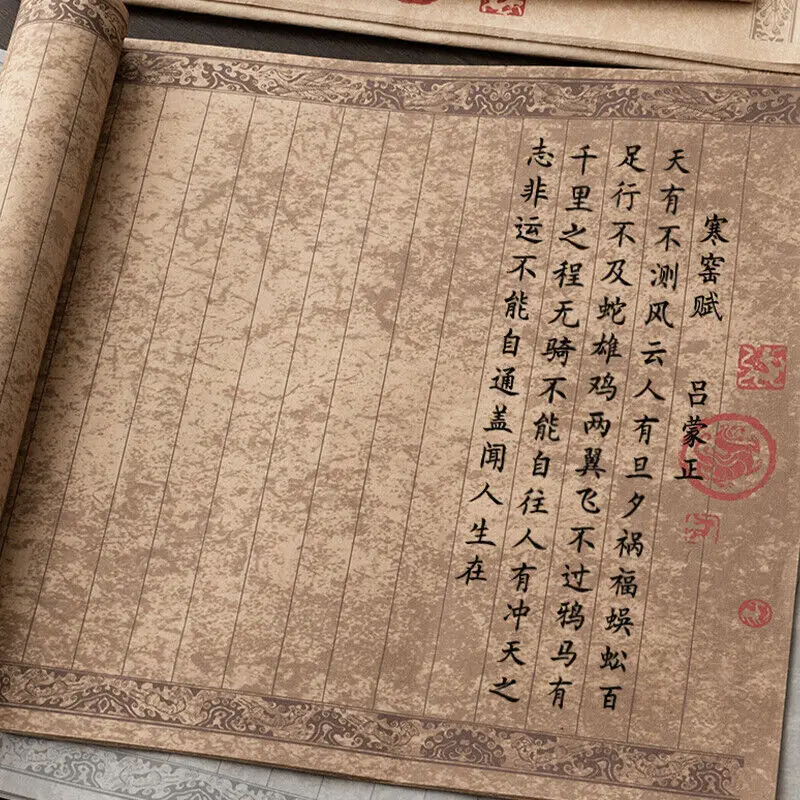 寒窑赋 吕蒙正
天有不测风云人有旦夕祸福蜈蚣百
足行不及蛇雄鸡两翼飞不过鸦马有
千里之程无骑不能自往人有冲天之
志非运不能自通盖闻人生在